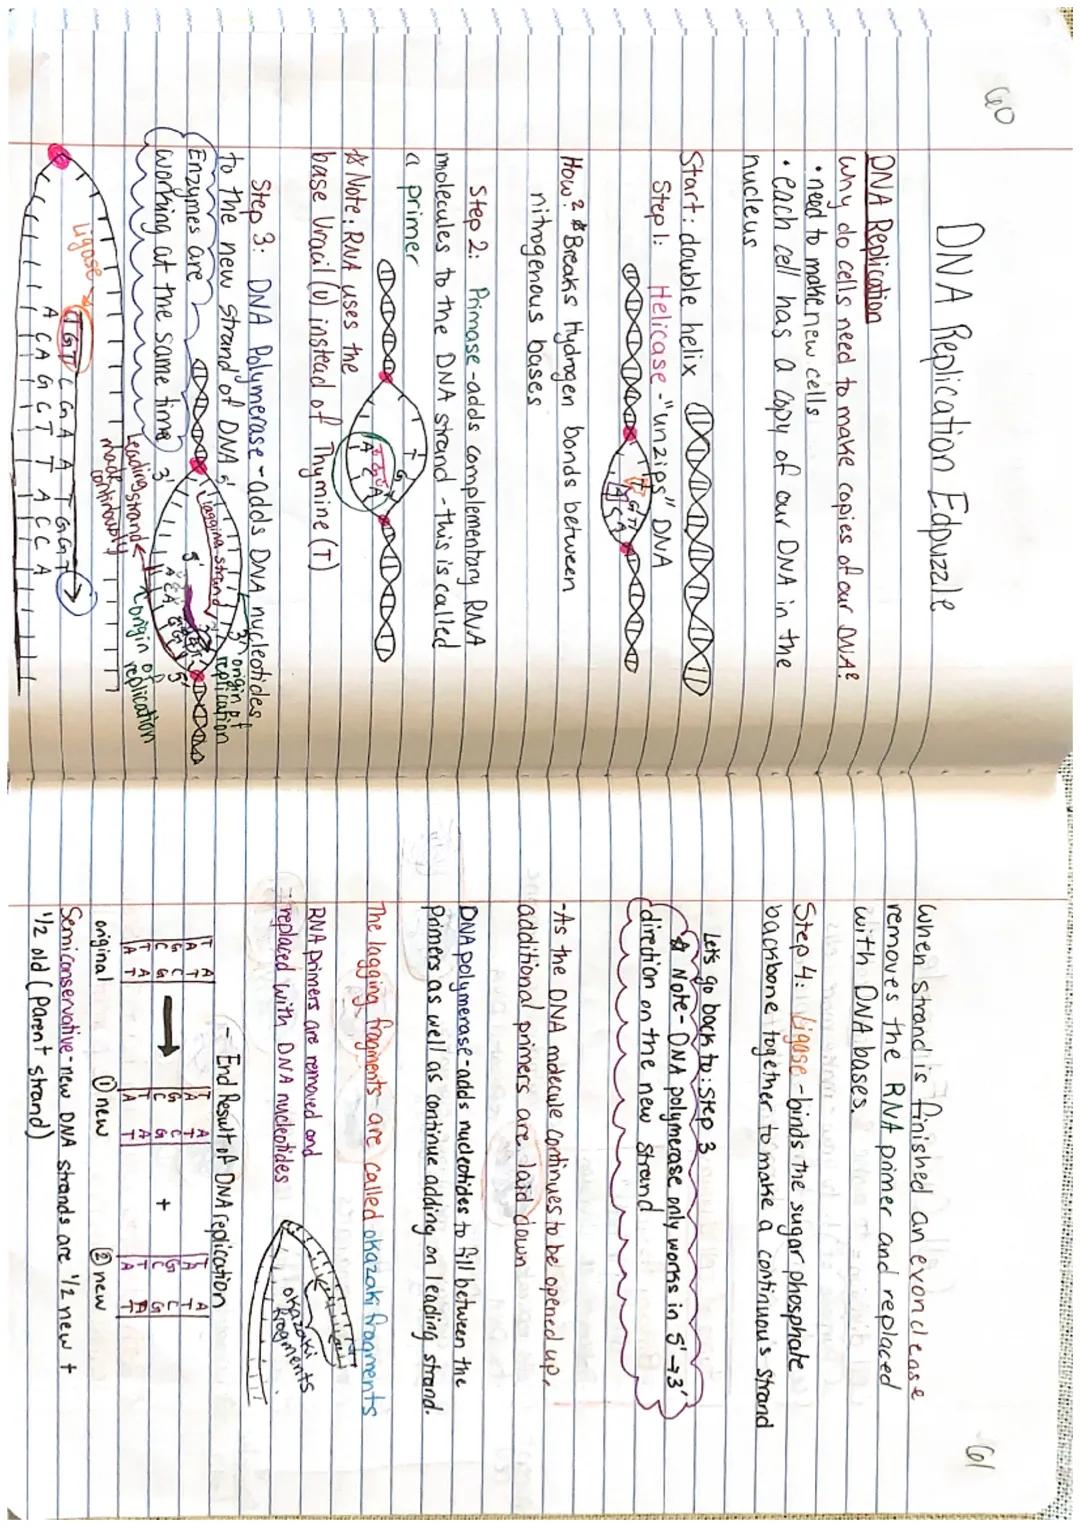 60
DNA Replication Edpuzzle
DNA Replication
Why do cells need to make copies of our DNA?
• need to make new cells
• each cell has a copy of our DNA in the
nucleus
Start: double helix
Step 1: Helicase - "unzips" DNA
T G T
A C A
How? Breaks Hydrogen bonds between
nitrogenous bases
Step 2: Primase - adds complementary RNA
molecules to the DNA strand - this is called
a primer
T G
A C A
Note: RNA uses the
base Uracil (U) instead of Thymine (T)
Step 3: DNA Polymerase - adds DNA nucleotides
to the new strand of DNA
Enzymes are
working at the same time
5'
3'
lagging strand
3'
origin of
replication
5'
A C A
5'
Leading strand
made
continously
origin of
replication
Ligase
T G T C G A A T G G T
A C A G C T T A C C A
61
when strand is finished an exonclease
removes the RNA primer and replaced
with DNA bases.
Step 4: Ligase - binds the sugar phosphate
backbone together to make a continuous strand
Let's go back to: Step 3
Note - DNA polymerase only works in 5' → 3'
direction on the new strand
- As the DNA molecule continues to be opened up,
additional primers are laid down
DNA polymerase - adds nucleotides to fill between the
primers as well as continue adding on leading strand.
The lagging fragments are called okazaki fragments
RNA primers are removed and
- replaced with DNA nucleotides
okazaki
fragments
- End Result of DNA replication
T A T A T A
A T A T A T
G C G C G C
C G C G C G
T A T A T A
A T A T A T
+
original ① new ② new
Semiconservative - new DNA strands are 1/2 new +
1/2 old (Parent strand)